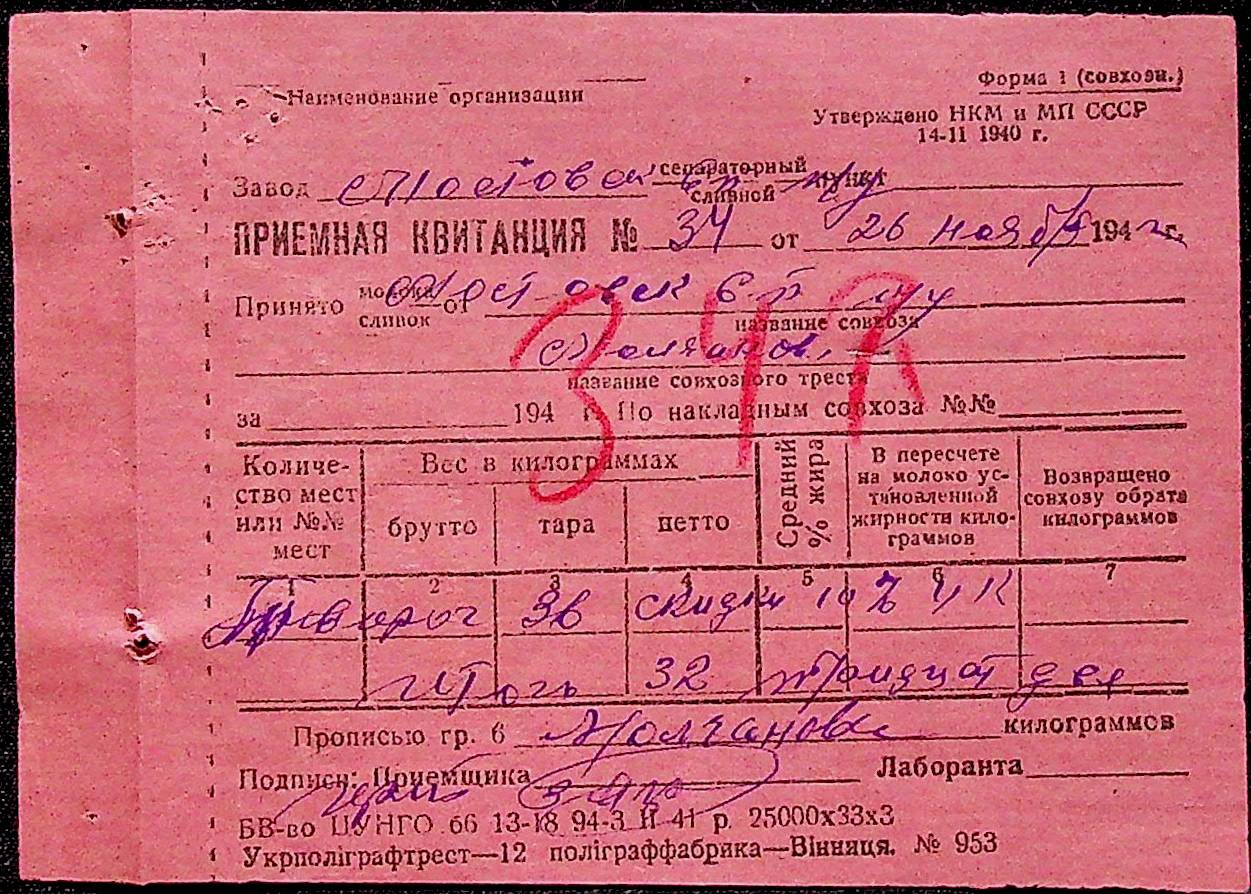 Наименование организации
Форма 1 (совхозн.)
Утверждено НКМ и МП СССР
14-11 1940 г.
Завод сепараторный сливной пункт
ПРИЕМНАЯ КВИТАНЦИЯ № 34 от 26 ноября 194 г.
Принято молока сливок от
название совхоза
название совхозного треста
за 194 г. По накладным совхоза №№
Количество мест или №№ мест
Вес в килограммах
брутто тара нетто
Средний % жира
В пересчете на молоко установленной жирности килограммов
Возвращено совхозу обрата килограммов
1 2 3 4 5 6 7
Творог скидки
32 тридцат два
Прописью гр. 6 Молчанова килограммов
Подписи: Приемщика Лаборанта
БВ-во ЦУНГО 66 13-18 94-3 II 41 р. 25000х33х3
Укрполіграфтрест—12 поліграффабрика—Вінниця. № 953